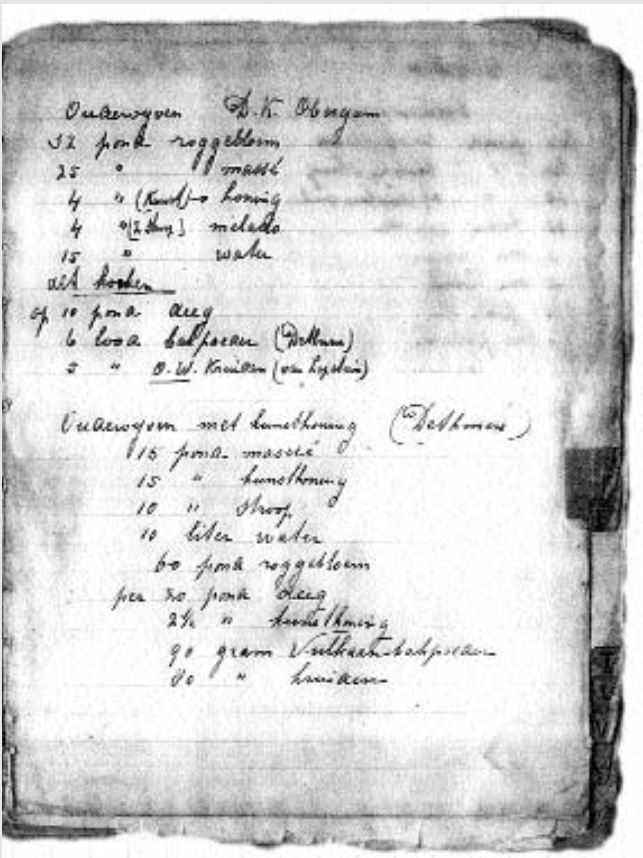 Oudewyven D. K. Obergum
32 pond roggebloem
25 " massé
4 " (Kunst) honing
4 " melado
15 " water
op 10 pond deeg
6 lood bakpoeder
5 " O. W. Kruiden
Oudewyven met kunsthoning (Dethmers)
15 pond massé
15 " kunsthoning
10 " stroop
10 liter water
60 pond roggebloem
per 20 pond deeg
2½ " kunsthoning
90 gram Vulkaan bakpoeder
80 " kruiden